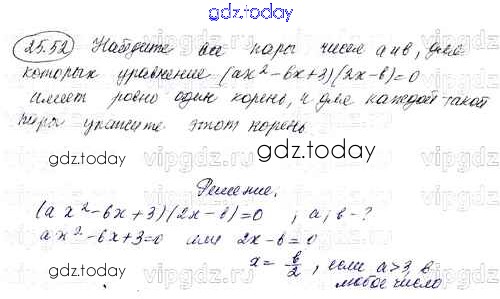 gdz.today
25.52 Найдите все пары чисел а и в, для
которых уравнение (ax²-6x+3)(2x-в)=0
имеет ровно один корень, и для каждой такой
пары укажите этот корень
gdz.today
gdz.today
Решение.
(ax²-6x+3)(2x-в)=0 , а; в-?
ax²-6x+3=0 или 2x-в=0
x= в/2, если а>3, в
любое число
gdz.today